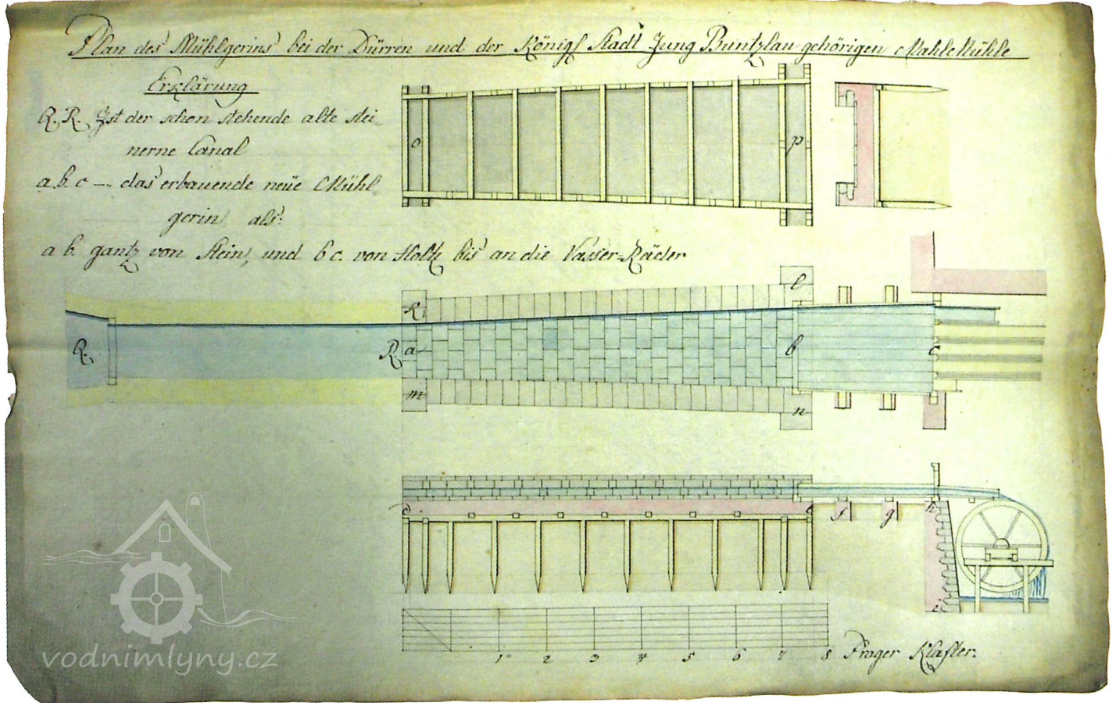 Plan des Mühlgerins bei der Dürren und der Königl Stadt Jung Buntzlau gehörigen Mahl Mühle
Erklärung
R. R. Ist der schon stehende alte stei
nerne Canal
a. b. c — das erbauende neüe Mühl
gerin als:
a b. gantz von Stein, und b c. von Holtz bis an die Vasser-Räder
o p
K l
R. R a b c
m n
d e f g h
i
1 2 3 4 5 6 7 8 Prager Klafter.
vodnimlyny.cz